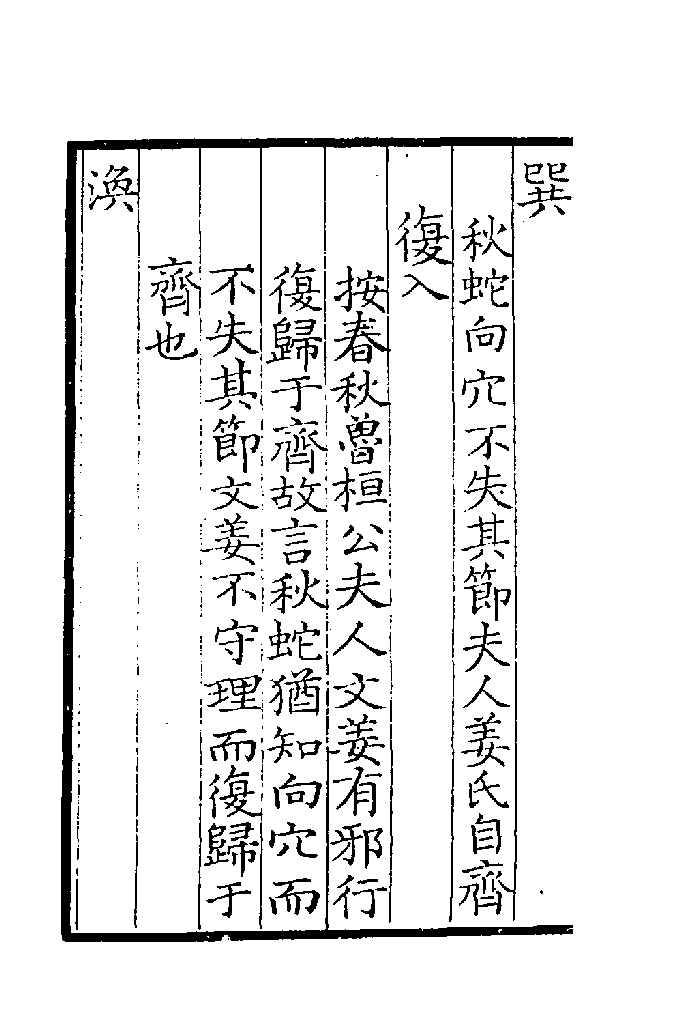 巽
秋蛇向穴不失其節夫人姜氏自齊
復入
按春秋魯桓公夫人文姜有邪行
復歸于齊故言秋蛇猶知向穴而
不失其節文姜不守理而復歸于
齊也
渙